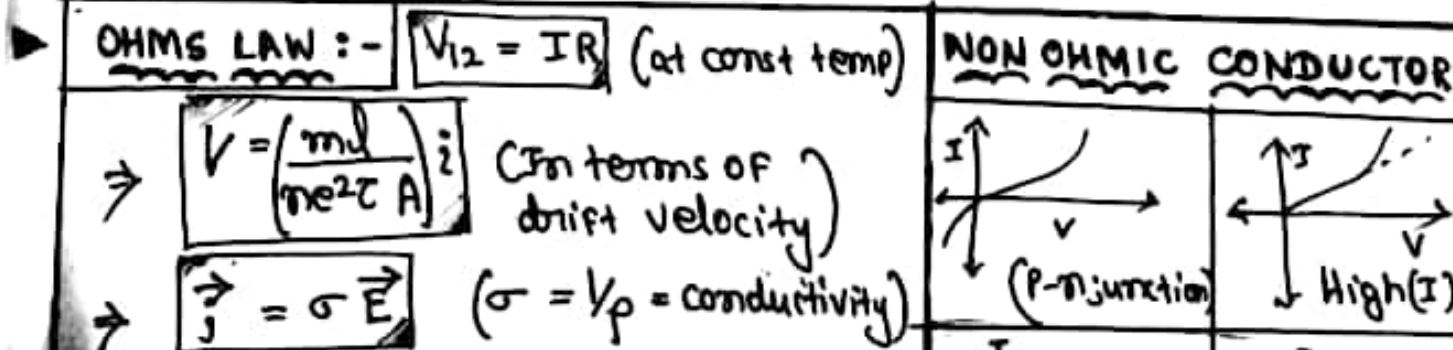 OHMS LAW :- V₁₂ = IR (at const temp)
⇒ V = (ml / ne²τ A) i (In terms of drift velocity)
⇒ j⃗ = σ E⃗ (σ = 1/ρ = conductivity)
NON OHMIC CONDUCTOR
I
V
(P-n junction)
I
V
High (I)
I